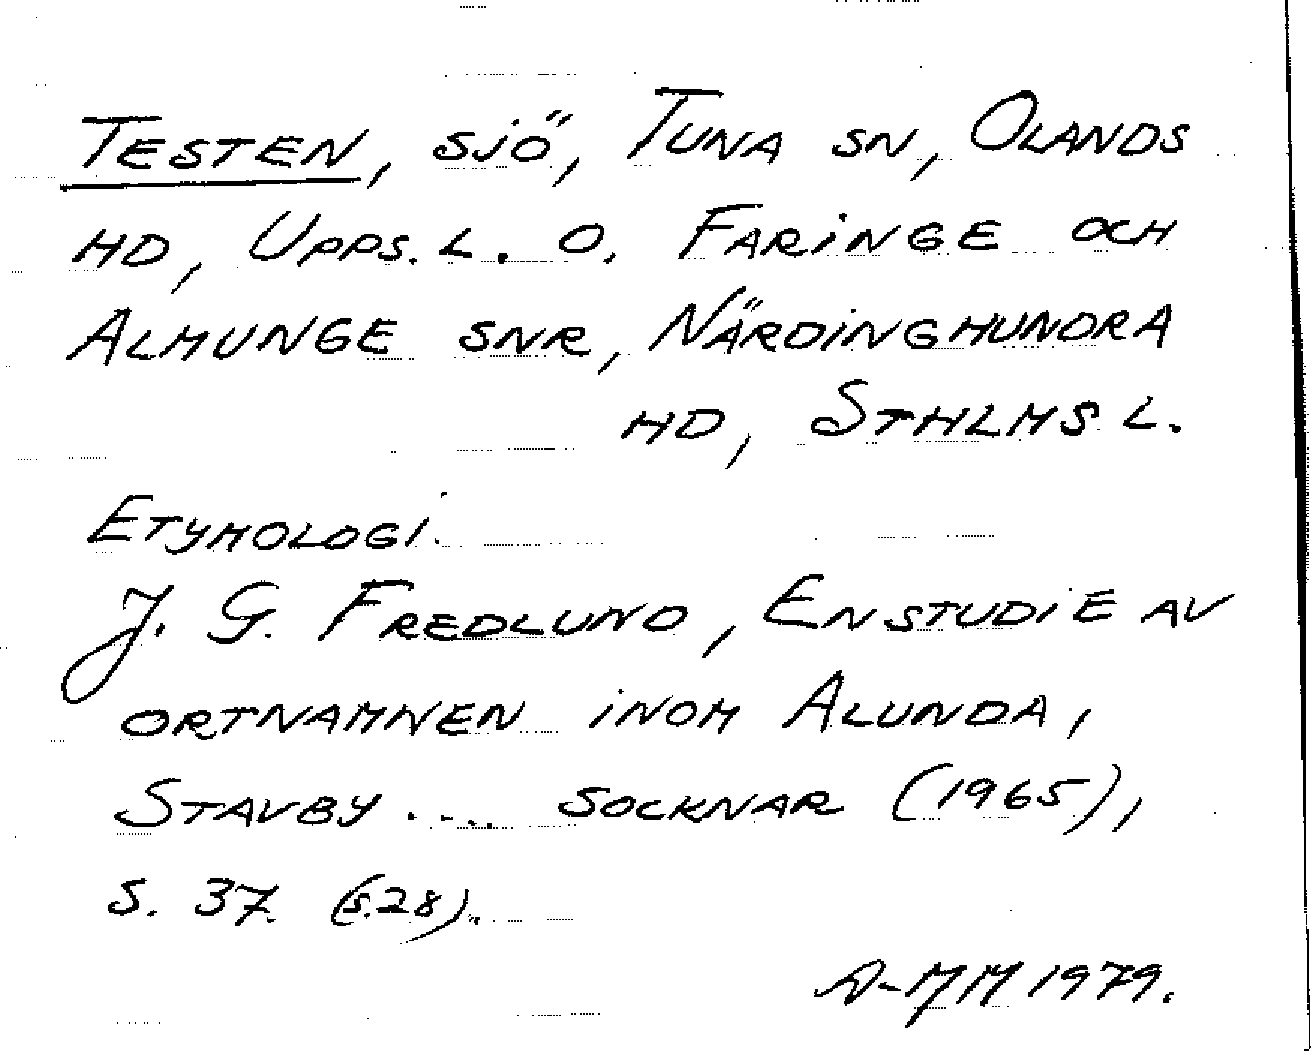 TESTEN, SJÖ, TUNA SN, OLANDS
HD, UPPS. L. O. FARINGE OCH
ALMUNGE SNR, NÄRDINGHUNDRA
HD, STHLMS L.
ETYMOLOGI.
J. G. FREDLUND, EN STUDIE AV
ORTNAMNEN INOM ALUNDA,
STAVBY .... SOCKNAR (1965),
S. 37. (S.28).
A-MM 1979.